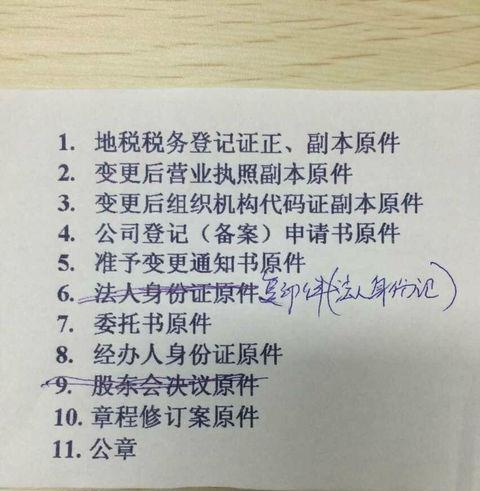 1. 地税税务登记证正、副本原件
2. 变更后营业执照副本原件
3. 变更后组织机构代码证副本原件
4. 公司登记（备案）申请书原件
5. 准予变更通知书原件
6. 法人身份证原件 复印件(法人身份证)
7. 委托书原件
8. 经办人身份证原件
9. 股东会决议原件
10. 章程修订案原件
11. 公章